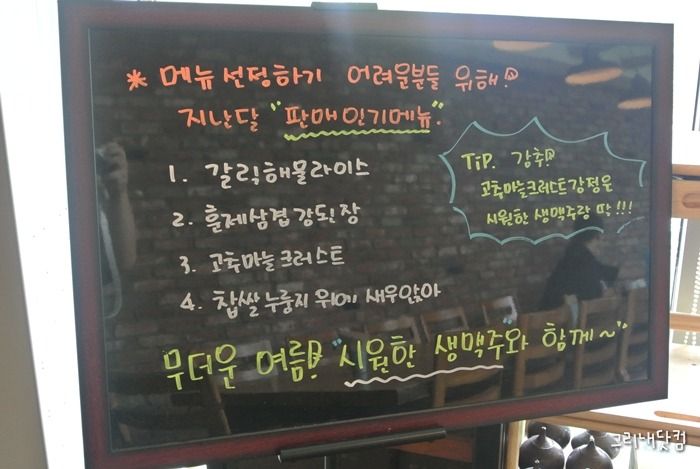 * 메뉴선정하기 어려운분들 위해!
지난달 "판매인기메뉴".
1. 갈릭해물라이스
2. 훈제삼겹강된장
3. 고추마늘크러스트
4. 찹쌀누룽지 위에 새우앉아
TiP. 강추!
고추마늘크러스트강정은
시원한 생맥주랑 딱!!!
무더운 여름! "시원한 생맥주와 함께~"
그리내닷컴